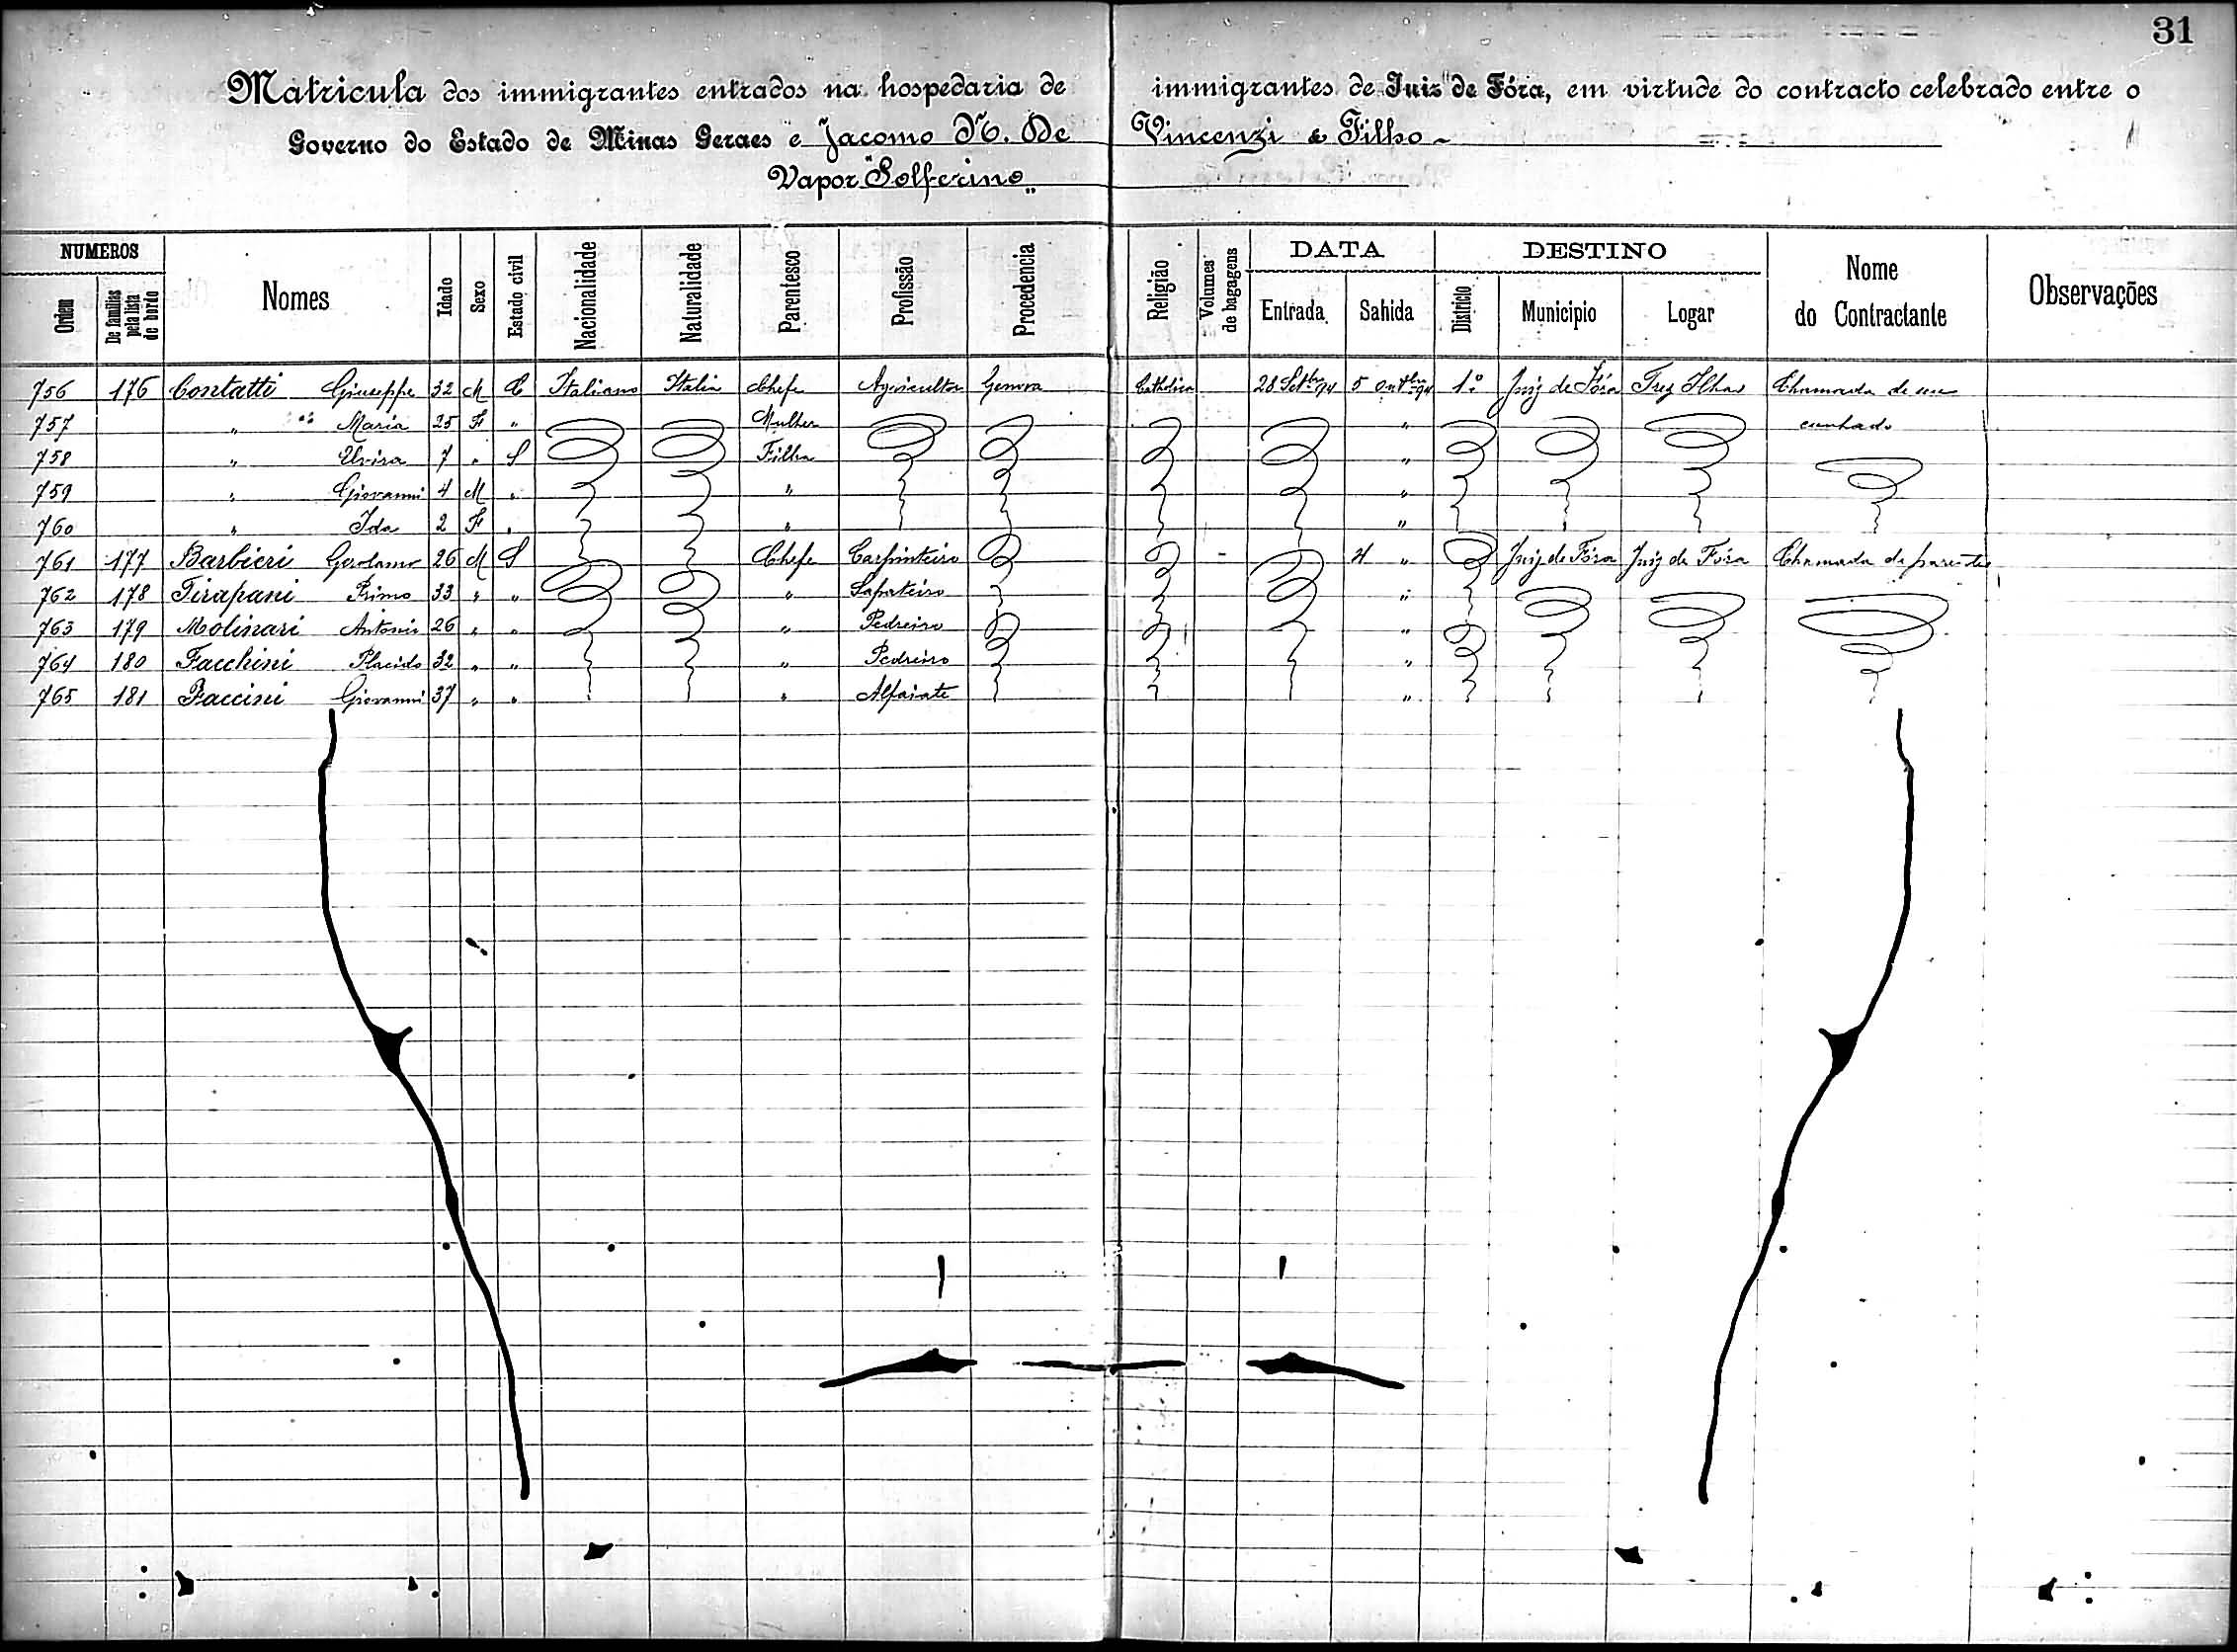 31
Matricula dos immigrantes entrados na hospedaria de immigrantes de Juiz de Fóra, em virtude do contracto celebrado entre o
Governo do Estado de Minas Geraes e Jacomo N. De Vincenzi & Filho
Vapor "Solferino"
NUMEROS Nomes Idade Sexo Estado civil Nacionalidade Naturalidade Parentesco Profissão Procedencia Religião Volumes de bagagens DATA DESTINO Nome do Contractante Observações
Ordem De familias pela lista de bordo Entrada Sahida Districto Municipio Logar
756 176 Contatti Giuseppe 32 M C Italiano Italia Chefe Agricultor Genova Catholica 28 Setbro 94 5 Outbro 94 1º Juiz de Fóra Trez Ilhas Chamada de seu
757 " Maria 25 F " Mulher " cunhado
758 " Elvira 7 " S Filha "
759 " Giovanni 4 M " " "
760 " Ida 2 F " " "
761 177 Barbieri Gerolamo 26 M S Chefe Carpinteiro - 4 " Juiz de Fóra Juiz de Fóra Chamada de parentes
762 178 Tirapani Primo 33 " " " Sapateiro "
763 179 Molinari Antonio 26 " " " Pedreiro "
764 180 Facchini Placido 32 " " " Pedreiro "
765 181 Faccini Giovanni 37 " " " Alfaiate "